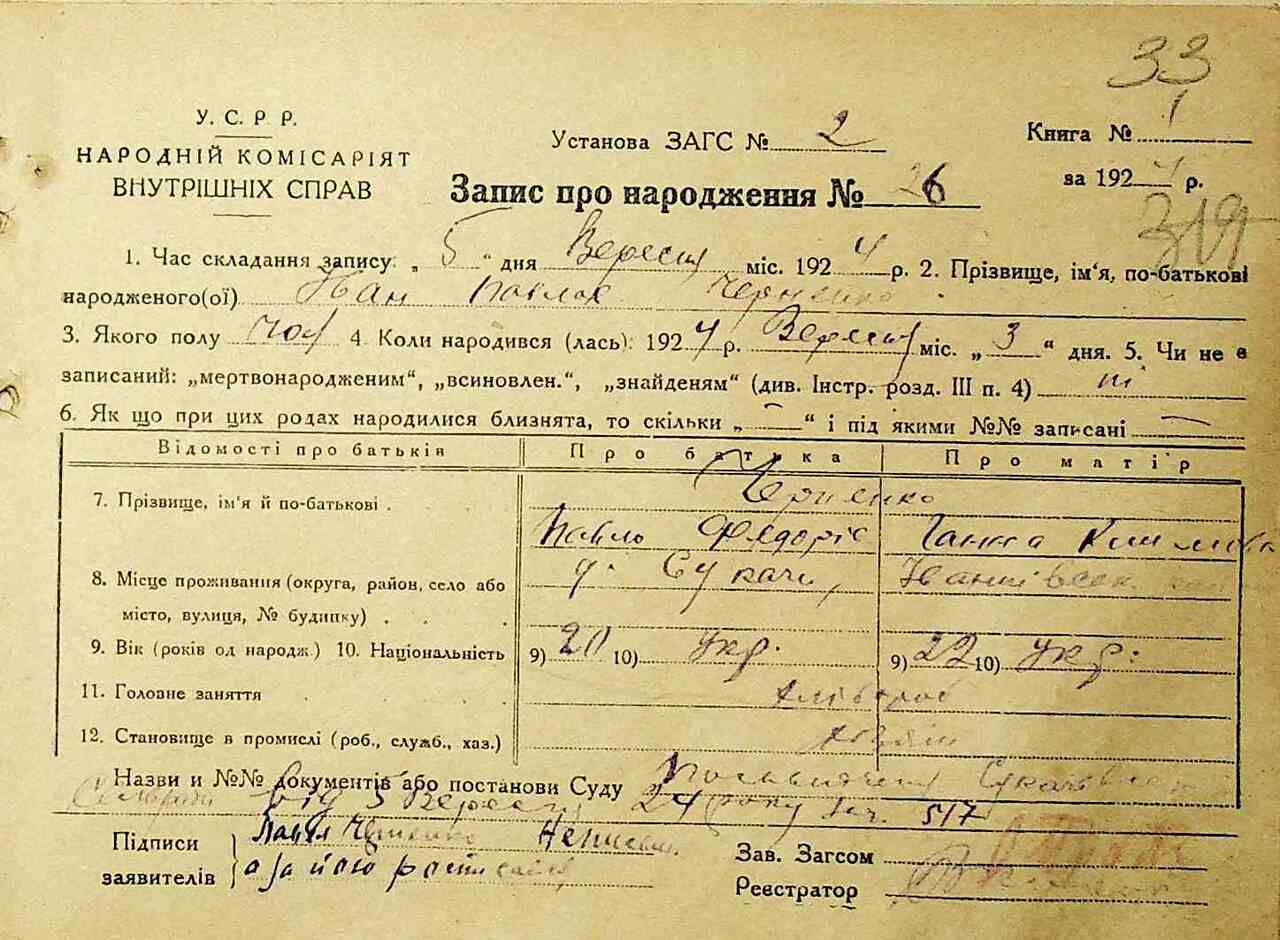 33
У. С. Р. Р.
НАРОДНІЙ КОМІСАРІЯТ
ВНУТРІШНІХ СПРАВ
Установа ЗАГС № 2
Книга № 1
за 1924 р.
Запис про народження № 26
319
1. Час складання запису: „ 5 “ дня Вересня міс. 1924 р. 2. Прізвище, ім'я, по-батькові
народженого(ої) Іван Павлов Черненко
3. Якого полу чол 4. Коли народився (лась): 1924 р. Вересня міс. „ 3 “ дня. 5. Чи не є
записаний: „мертвонародженим“, „всиновлен.“, „знайденям“ (див. Інстр. розд. III п. 4) ні
6. Як що при цих родах народилися близнята, то скільки „ — “ і під якими №№ записані —
Відомості про батьків Про батька Про матір
7. Прізвище, ім'я й по-батькові . Черненко
Павло Ганна
8. Місце проживання (округа, район, село або
місто, вулиця, № будинку) . . . Сукачі,
9. Вік (років од народж.) 10. Національність 9) 20 10) Укр. 9) 22 10) Укр.
11. Головне заняття . . хлібороб
12. Становище в промислі (роб., служб., хаз.)
Назви и №№ документів або постанови Суду
від 5 Вересня 24 року за ч. 517
Підписи
заявителів
Павло Черненко
а за його
Зав. Загсом
Реєстратор